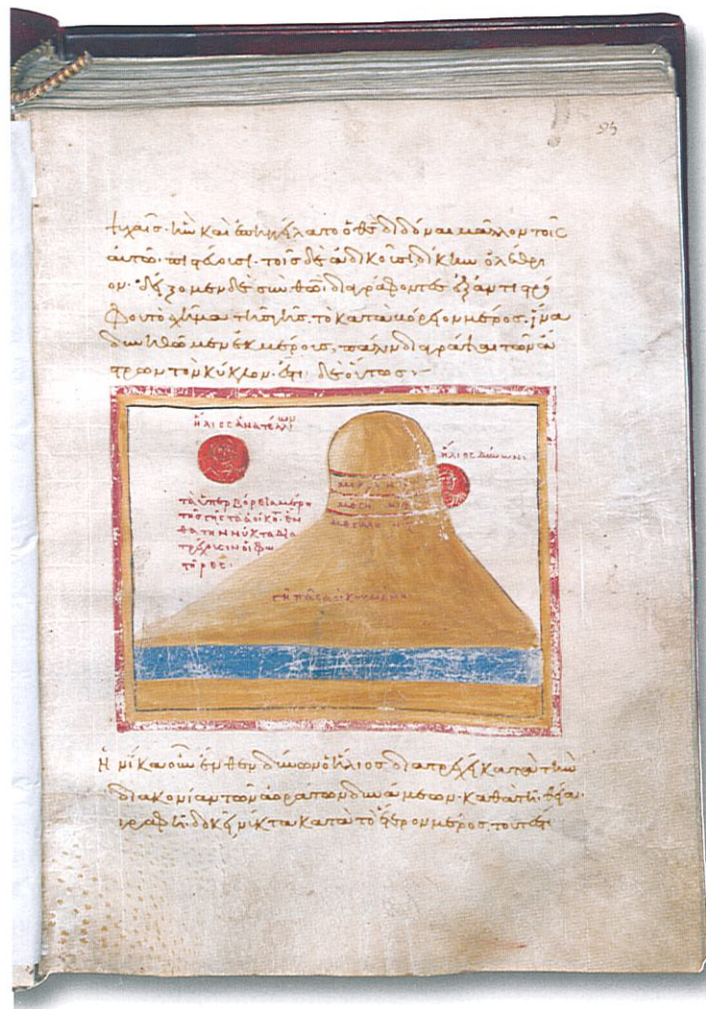 95
ψυχαῖς· ἣν καὶ ἐπηγγείλατο ὁ θσ διδόναι μᾶλλον τοῖς
αὐτῶ πιστεύουσι· τοῖς δὲ ἀδίκοις, δίκην ὀλέθρι
ον· δείξομεν δὲ σὺν θῶ, διαγράφοντες ἐξ ἀντιστρό
φου τὸ σχῆμα τῆς γῆς, τὸ κατὰ βόρειον μέρος, ἵνα
δυνηθῶμεν ἐκ μέρους, πάλιν διαγράψαι τῶν ἀ
στρων τὸν κύκλον· ἔστι δὲ οὕτως:~
ἥλιος ἀνατέλλων
ἥλιος δύνων:
τὰ ὑπερβόρεια μέρη
τῆς γῆς τὰ ἀοίκη· ἔν
θα τὴν νύκτα δια
τρέχουσιν οἱ φω
στῆρες·
μικρὰ νὺξ
μέση νὺξ
μεγάλη νὺξ
γῆ πᾶσα οἰκουμένη
Ἡνίκα οὖν ἔνθεν δύνων ὁ ἥλιος διατρέχει κατὰ τὴν
διακονίαν τῶν ἀοράτων δυνάμεων· καθὰ τῆ θεία
γραφῆ δοκεῖ, νύκτα κατὰ τὸ ἕτερον μέρος, τουτέστι